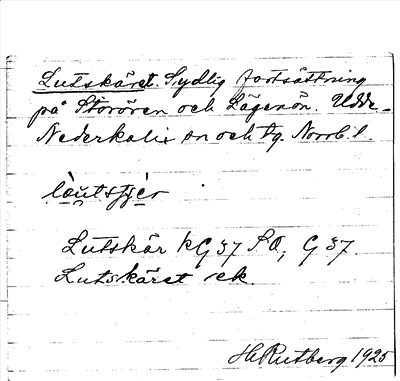 Lutskäret. Sydlig fortsättning
på Storören och Lägenön. Udde.
Nederkalix sn och tg. Norrb. l.
Lutskär kG 37 SO, G 37.
Lutskäret ek.
H Rutberg 1925